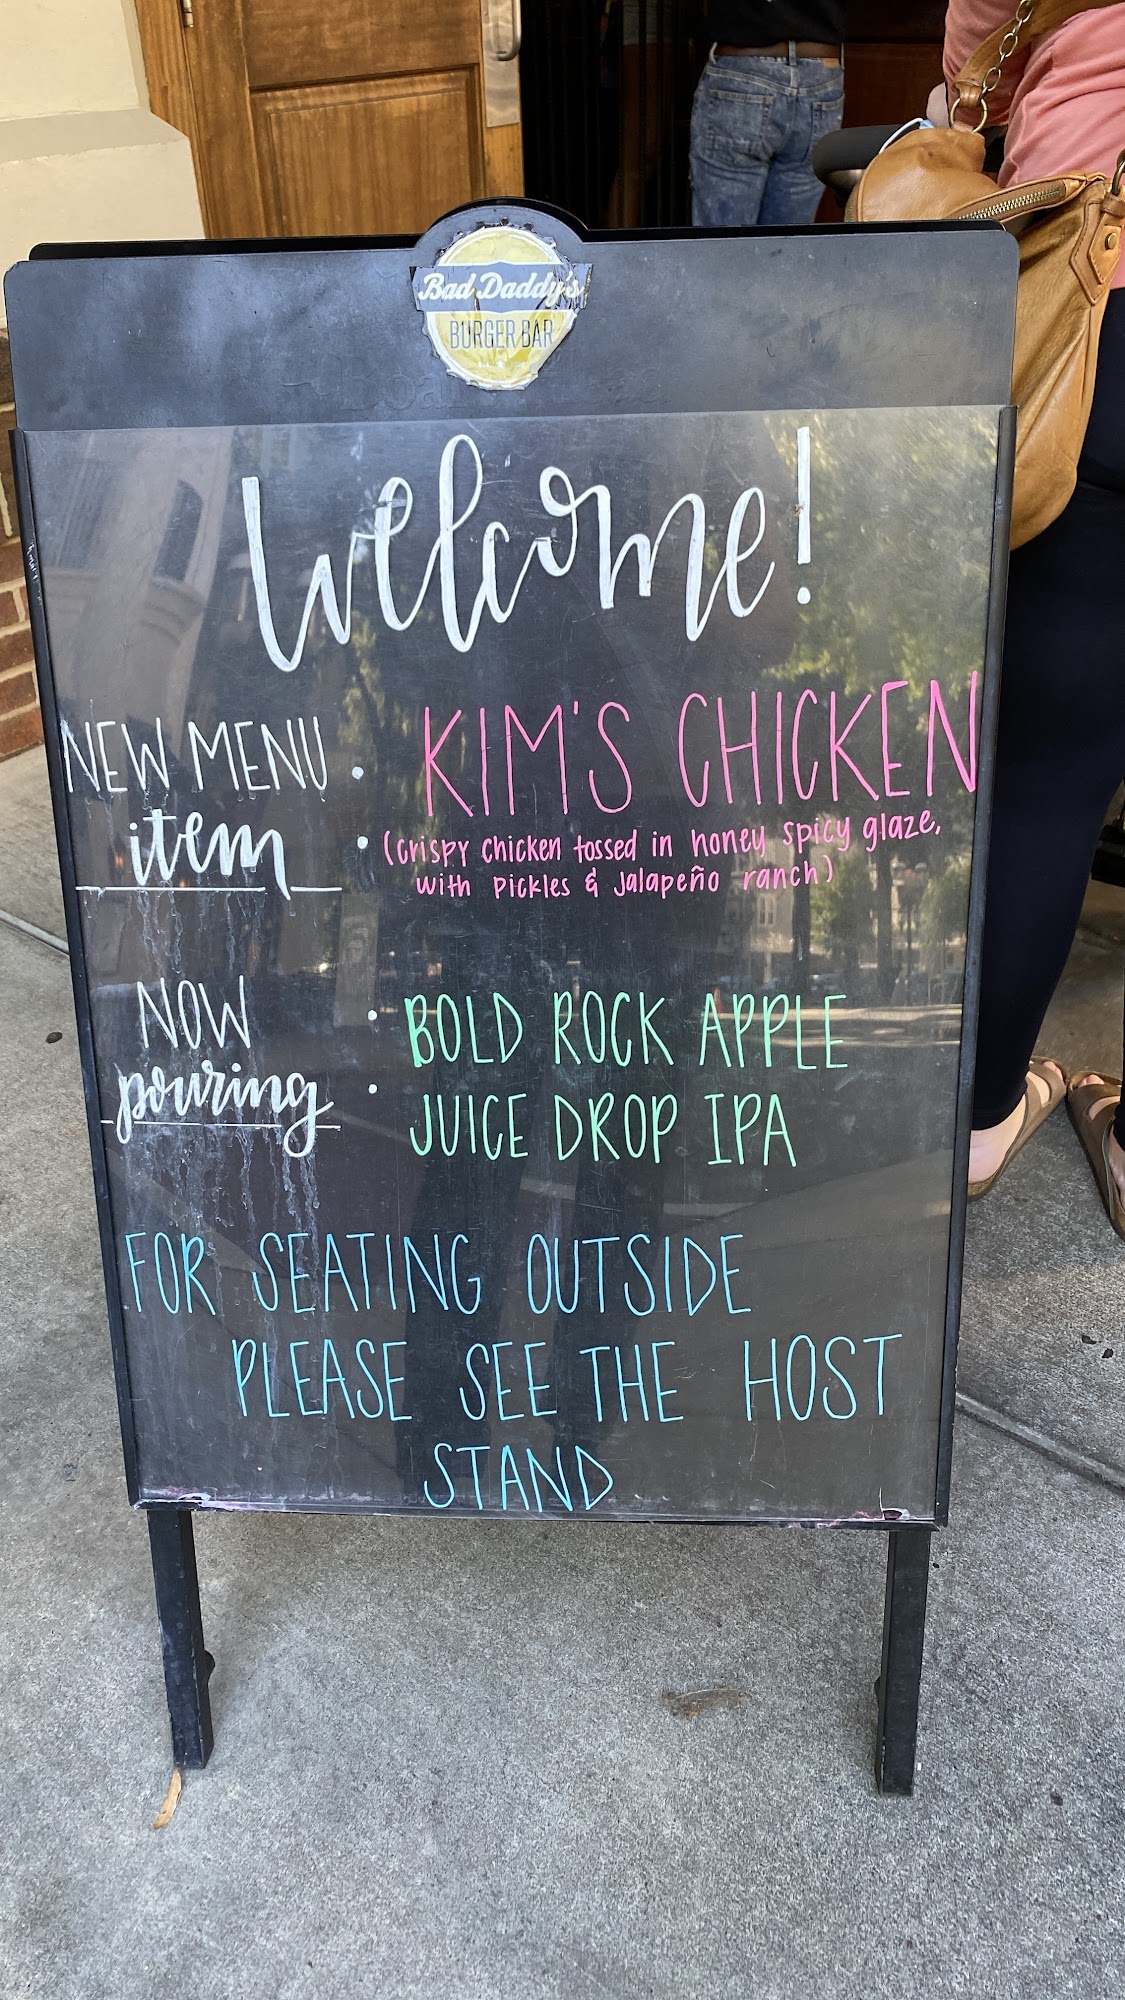 Bad Daddy's
BURGER BAR
welcome!
NEW MENU : KIM'S CHICKEN
item (crispy chicken tossed in honey spicy glaze,
with pickles & jalapeño ranch)
NOW : BOLD ROCK APPLE
pouring JUICE DROP IPA
FOR SEATING OUTSIDE
PLEASE SEE THE HOST
STAND